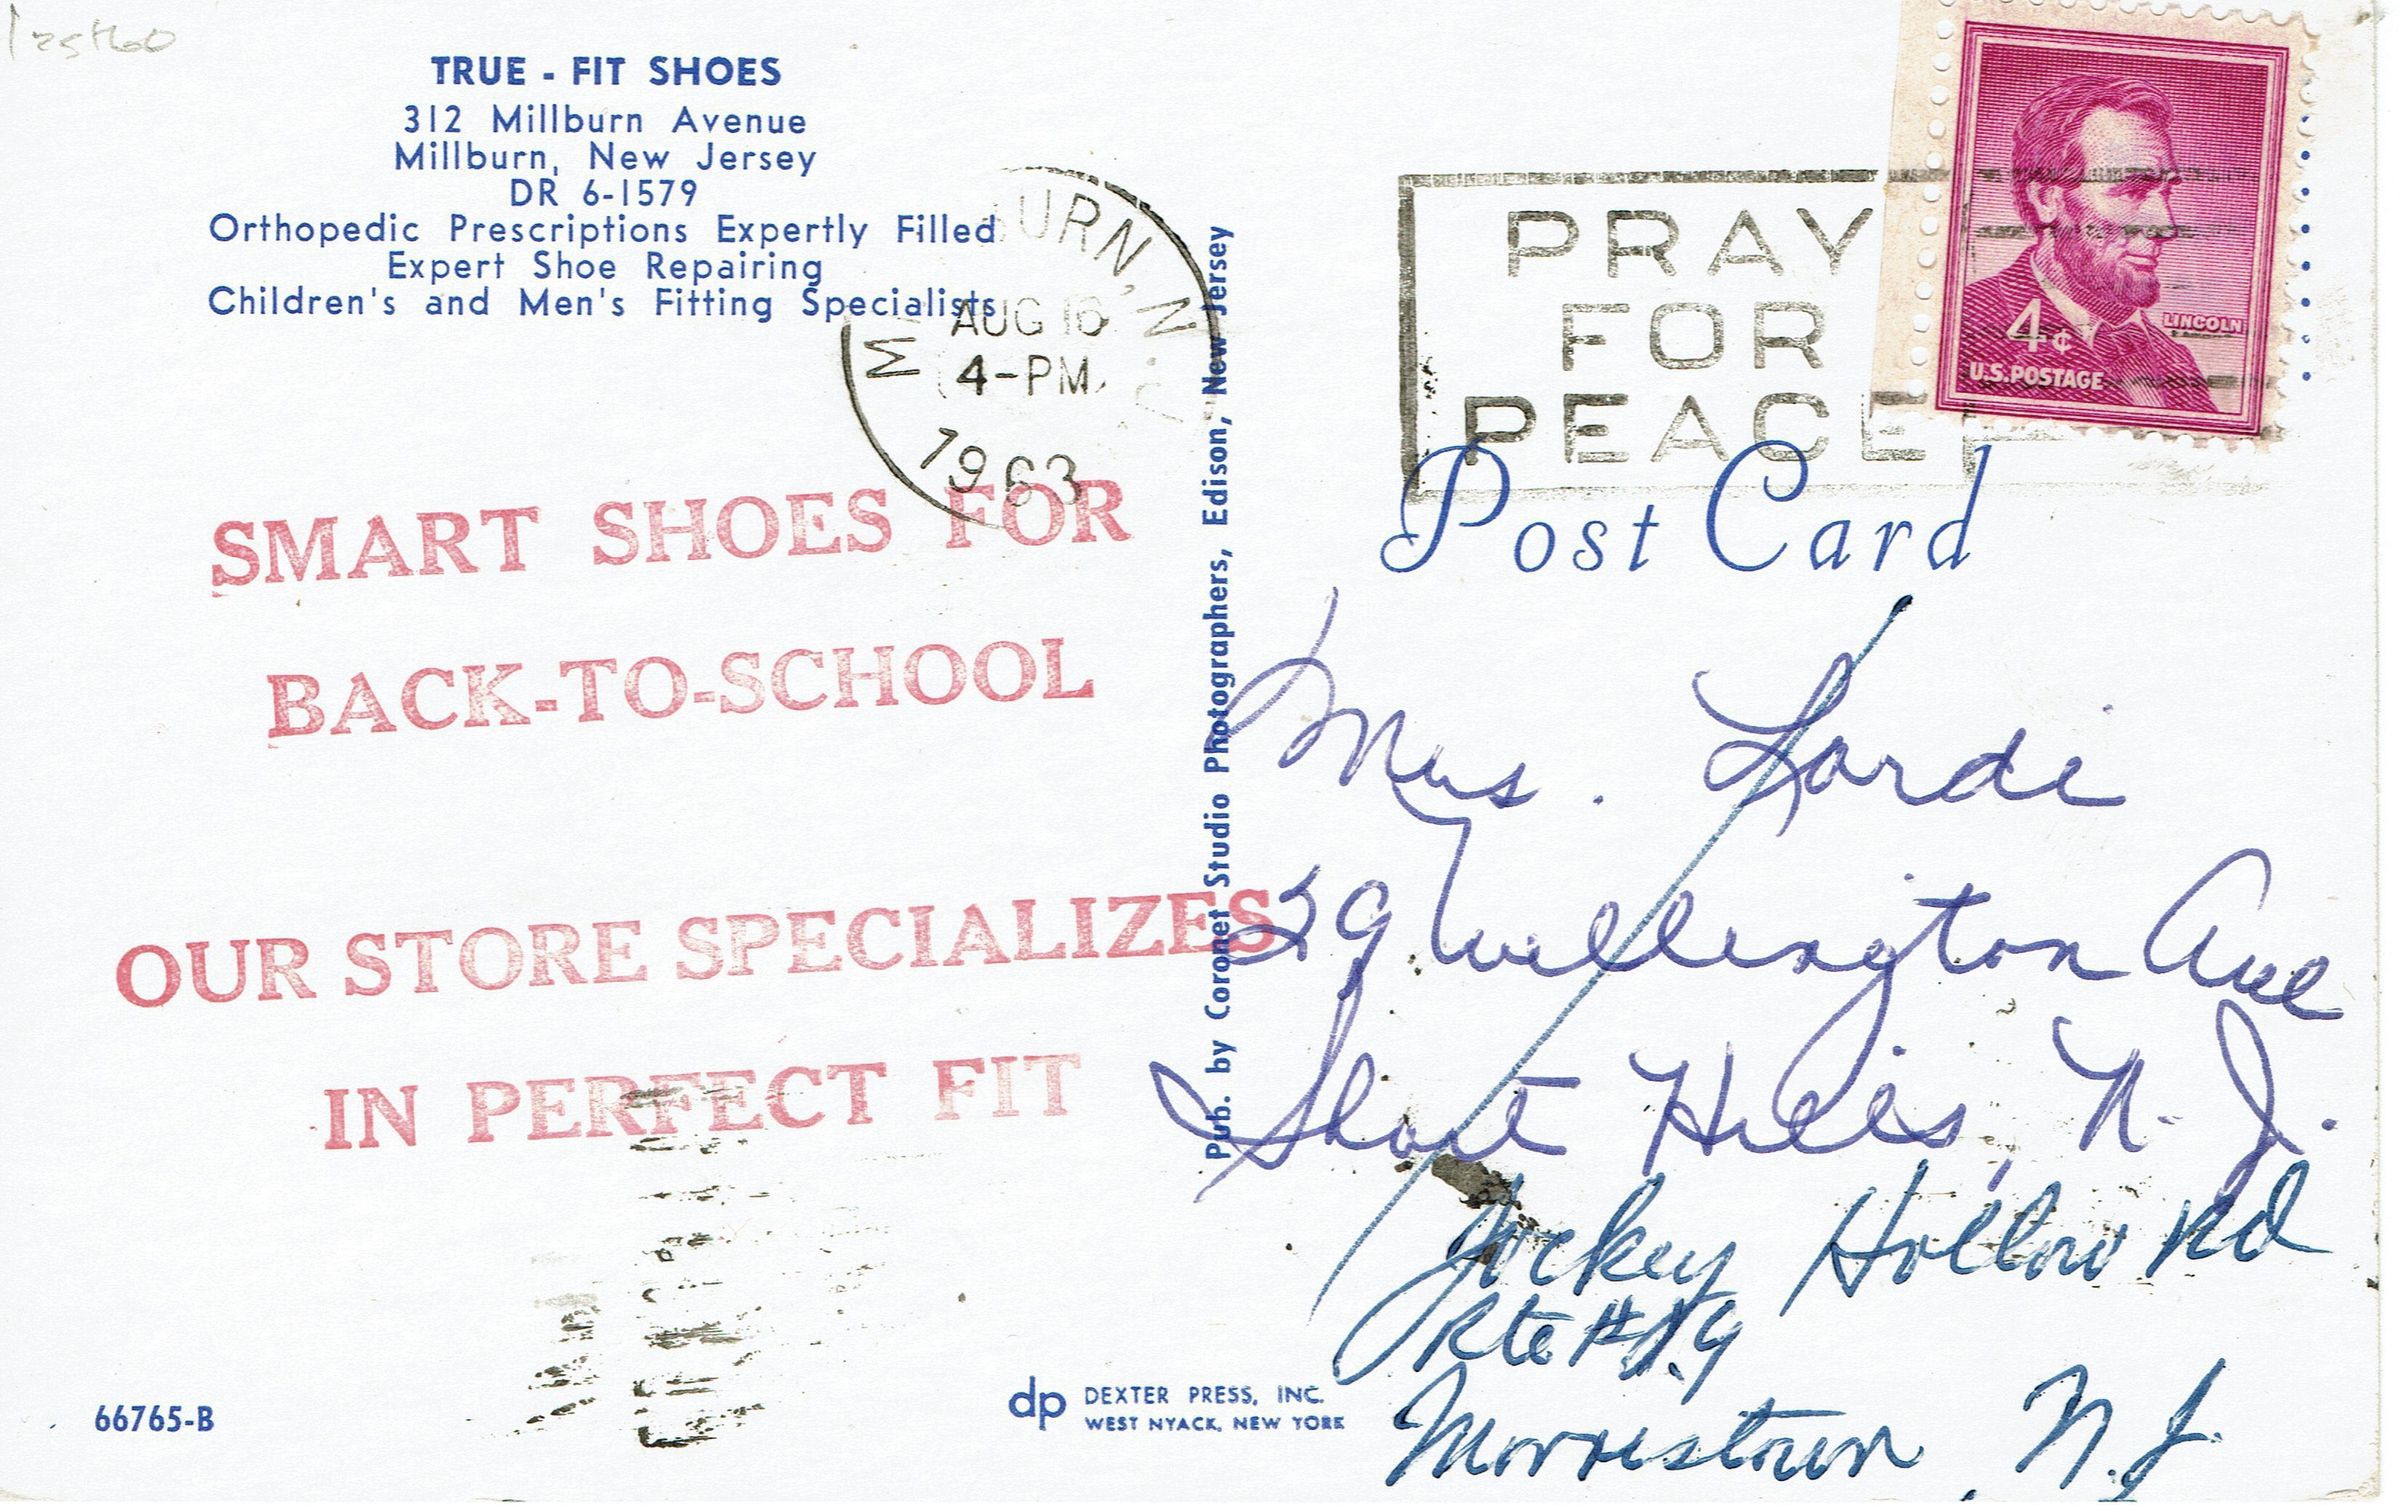 TRUE - FIT SHOES
312 Millburn Avenue
Millburn, New Jersey
DR 6-1579
Orthopedic Prescriptions Expertly Filled
Expert Shoe Repairing
Children's and Men's Fitting Specialists
URN, N.
M
AUG 16
4-PM
1963
PRAY
FOR
PEACE
4¢
LINCOLN
U.S. POSTAGE
SMART SHOES FOR
BACK-TO-SCHOOL
OUR STORE SPECIALIZES
IN PERFECT FIT
Pub. by Coronet Studio Photographers, Edison, New Jersey
Post Card
Mrs. Lordi
29 Wellington Ave
Short Hills, N.J.
Jockey Hollow Rd
Rte #
Morristown N.J.
66765-B
dp DEXTER PRESS, INC.
WEST NYACK, NEW YORK